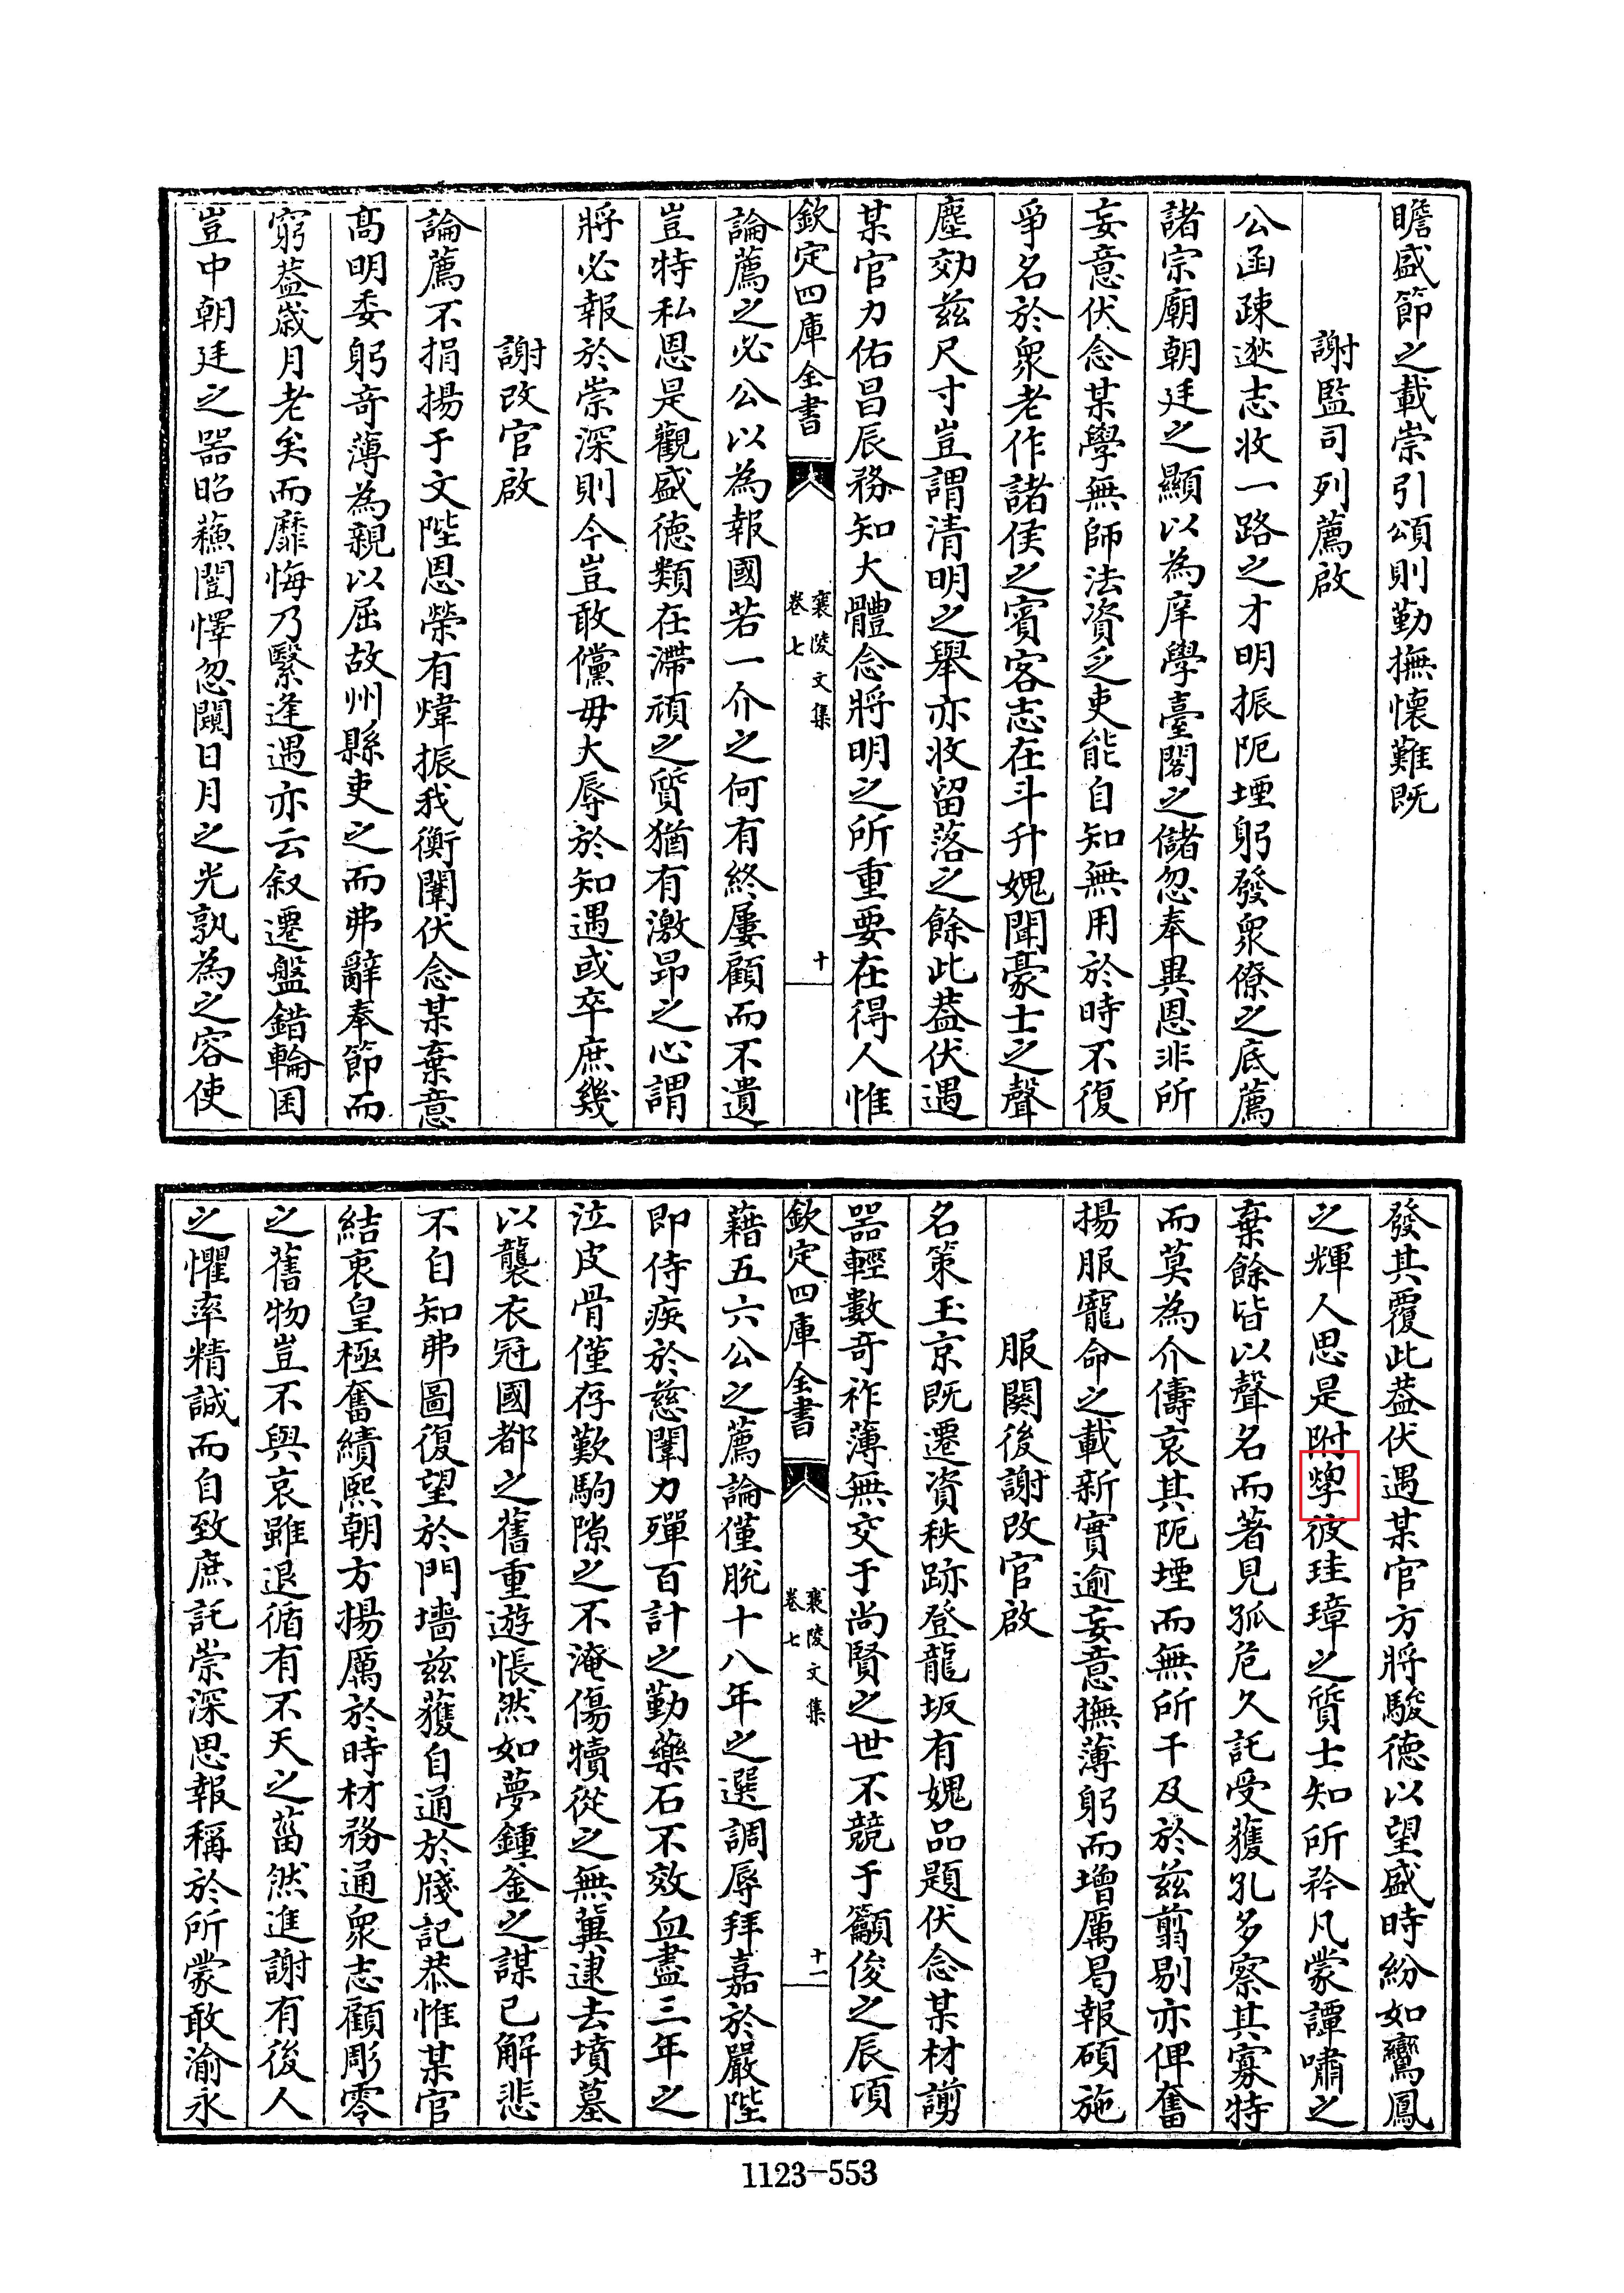 瞻盛節之載崇引頌則勤撫懐難既
謝監司列薦啟
公函疎逖志收一路之才明振阨堙躬發衆僚之底薦
諸宗廟朝廷之顯以為庠學臺閣之儲忽奉異恩非所
妄意伏念某學無師法資乏吏能自知無用於時不復
爭名於衆老作諸侯之賓客志在斗升媿聞豪士之聲
塵効兹尺寸豈謂清明之舉亦收留落之餘此葢伏遇
某官力佑昌辰務知大體念將明之所重要在得人惟
欽定四庫全書
襄陵文集
卷七
十
論薦之必公以為報國若一介之何有終屢顧而不遺
豈特私恩是觀盛德類在滯頑之質猶有激昂之心謂
將必報於崇深則今豈敢儻毋大辱於知遇或卒庶幾
謝改官啟
論薦不捐揚于文陛恩榮有煒振我衡闈伏念某棄意
髙明委躬竒薄為親以屈故州縣吏之而弗辭奉節而
窮葢歳月老矣而靡悔乃繄逢遇亦云叙遷盤錯輪囷
豈中朝廷之器昭蘓闓懌忽闚日月之光孰為之容使
發其覆此葢伏遇某官方將駿德以望盛時紛如鸞鳳
之輝人思是附犖彼珪璋之質士知所矜凡蒙譚嘯之
棄餘皆以聲名而著見孤危久託受獲孔多察其寡特
而莫為介儔哀其阨堙而無所干及於兹翦剔亦俾奮
揚服寵命之載新實逾妄意撫薄躬而增厲曷報碩施
服闋後謝改官啟
名策玉京既遷資秩跡登龍坂有媿品題伏念某材謭
器輕數竒祚薄無交于尚賢之世不競于籲俊之辰項
欽定四庫全書
襄陵文集
卷七
十一
藉五六公之薦論僅脫十八年之選調辱拜嘉於嚴陛
即侍疾於慈闈力殫百計之勤藥石不效血盡三年之
泣皮骨僅存歎駒隙之不淹傷犢從之無冀逮去墳墓
以襲衣冠國都之舊重遊悵然如夢鍾釜之謀已解悲
不自知弗圖復望於門墻兹獲自通於牋記恭惟某官
結衷皇極奮績熙朝方揚厲於時材務通衆志顧彫零
之舊物豈不興哀雖退循有不天之菑然進謝有後人
之懼率精誠而自致庶託崇深思報稱於所蒙敢渝永
1123-553